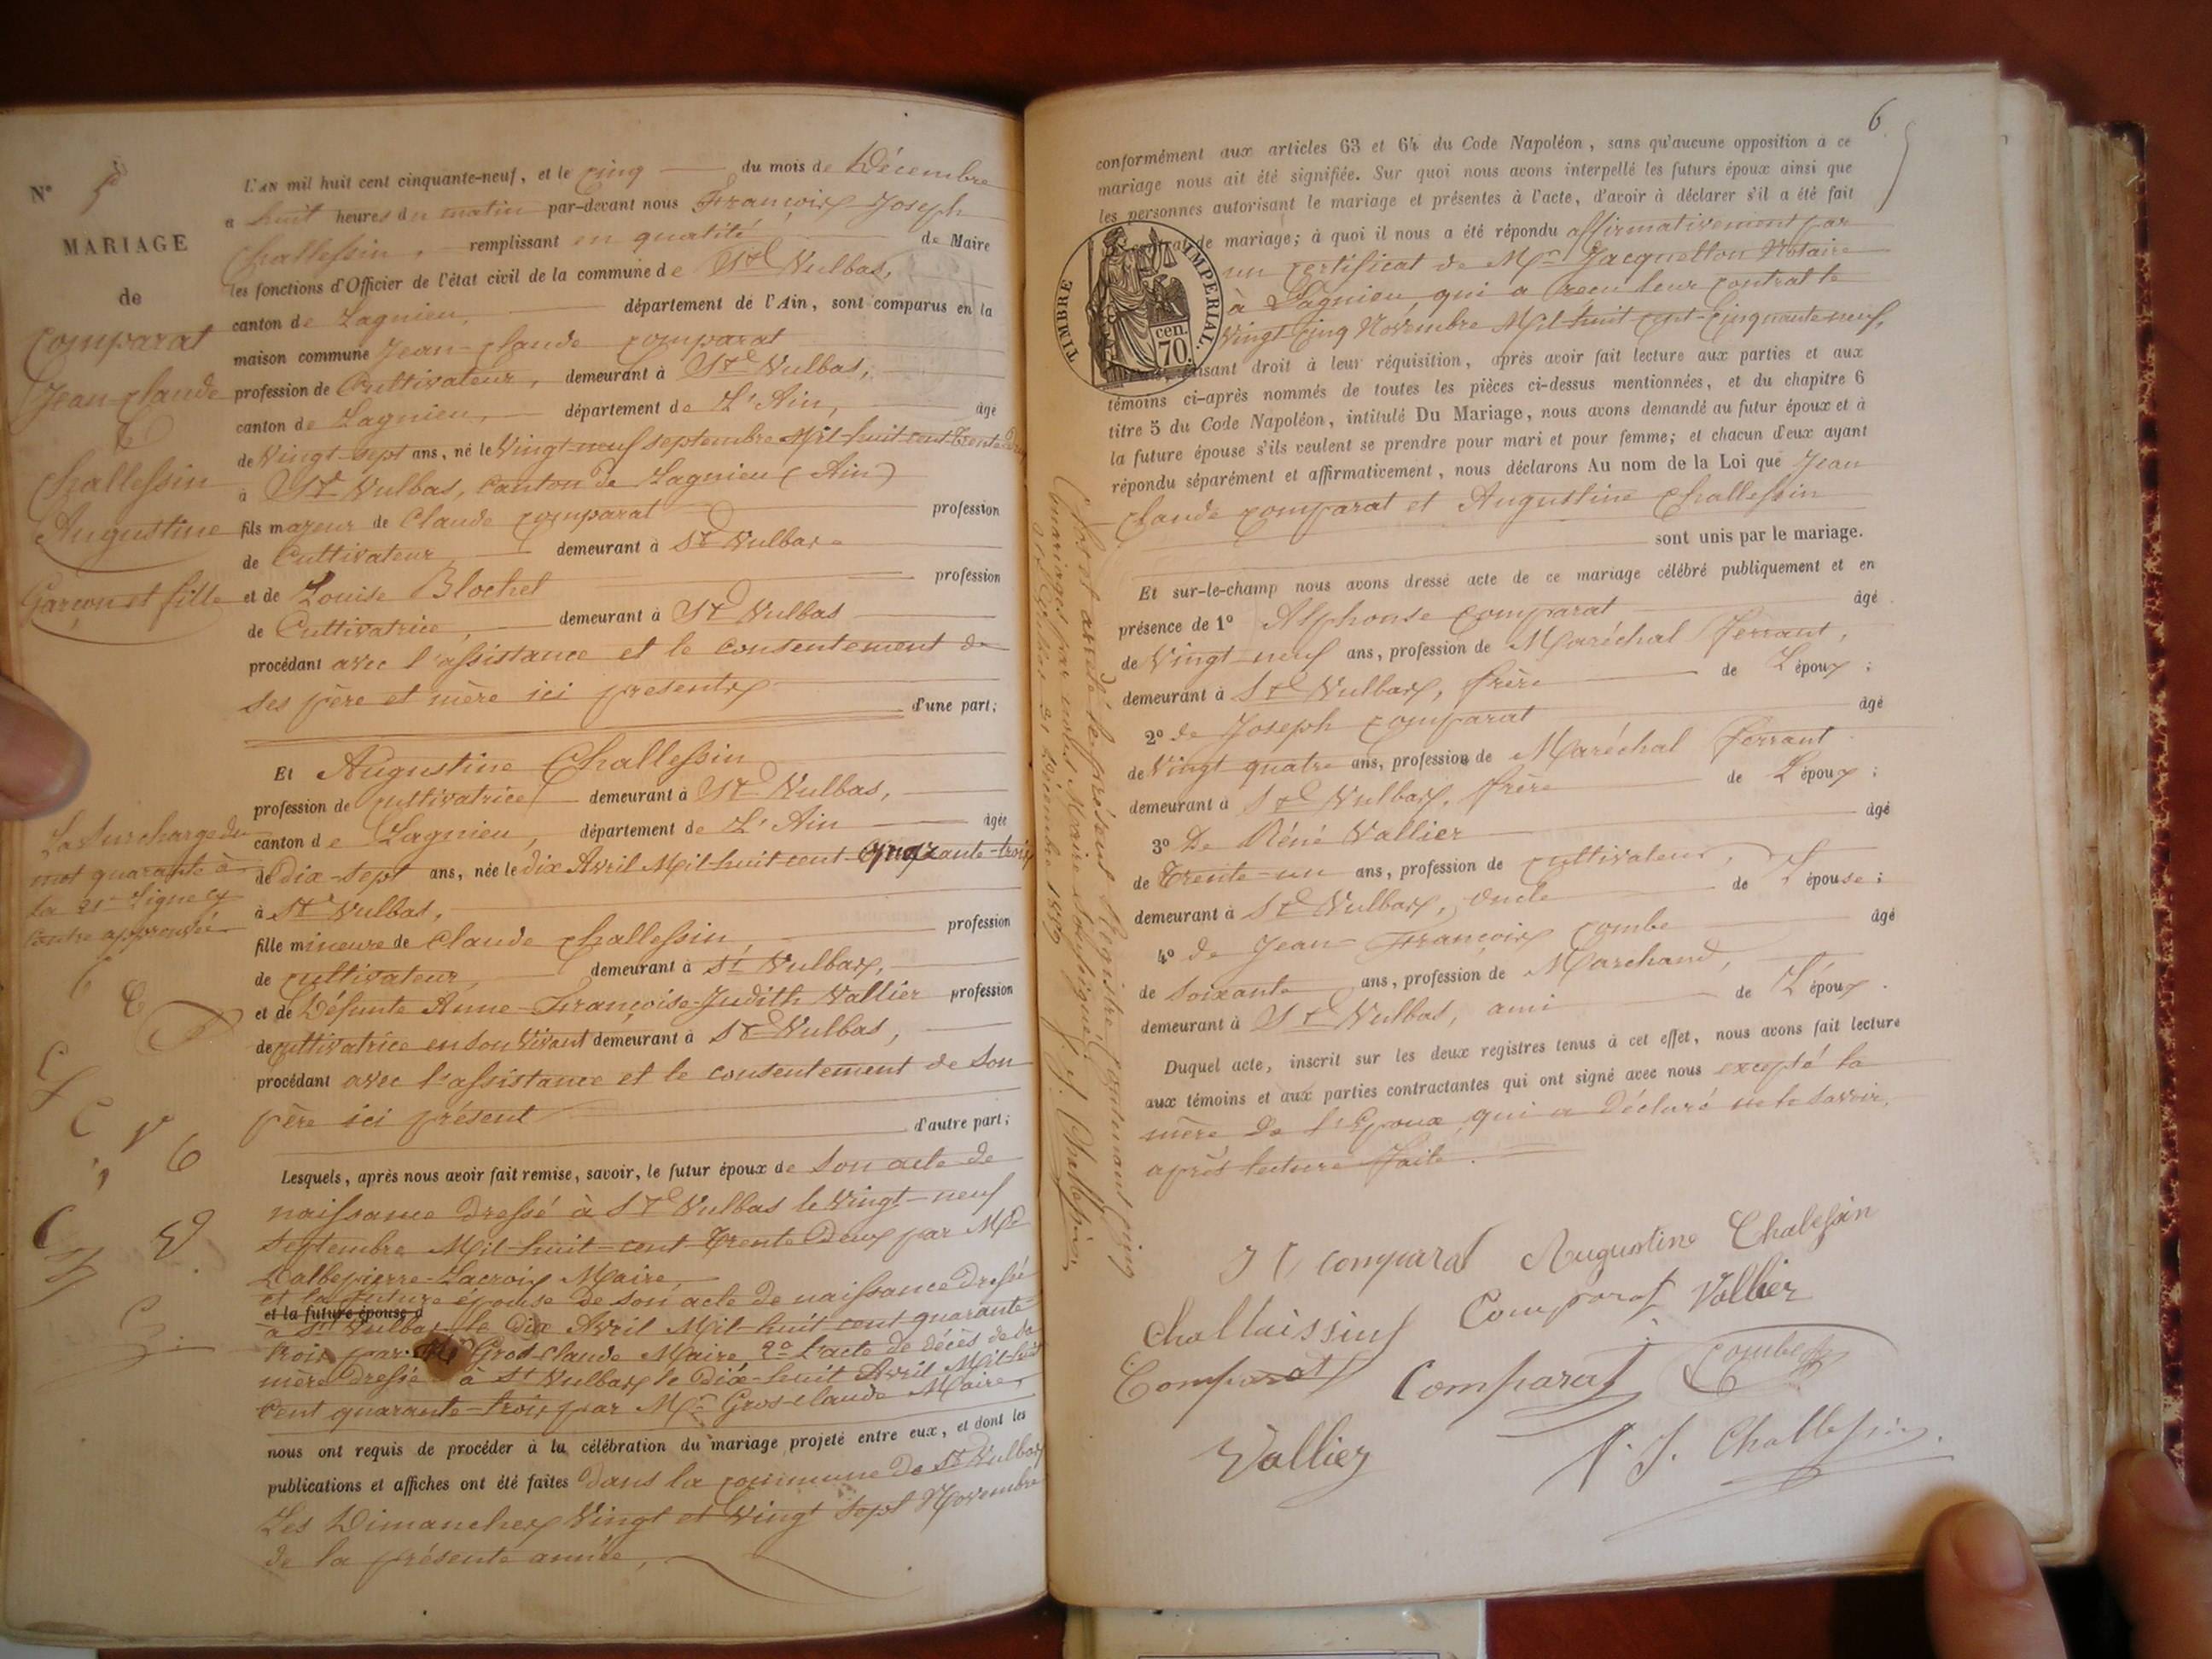 N° 5
MARIAGE
de
Comparat
Jean-Claude
&
Challessin
Augustine
Garçon et fille
La Surcharge du
mot quarante à
la 21e Ligne ci
contre approuvée
L'AN mil huit cent cinquante-neuf, et le cinq du mois de Décembre
a huit heures du matin par-devant nous François Joseph
Challessin, remplissant en qualité de Maire
les fonctions d'Officier de l'état civil de la commune de St Vulbas,
canton de Lagnieu, département de l'Ain, sont comparus en la
maison commune Jean-Claude Comparat
profession de Cultivateur, demeurant à St Vulbas,
canton de Lagnieu, département de L'Ain, âgé
de Vingt-sept ans, né le Vingt-neuf septembre Mil-huit-cent-Trente Deux
à St Vulbas, Canton de Lagnieu (Ain)
fils majeur de Claude Comparat profession
de Cultivateur demeurant à St Vulbas
et de Louise Blochet profession
de Cultivatrice, demeurant à St Vulbas
procédant avec l'assistance et le consentement de
ses père et mère ici presents d'une part;
Et Augustine Challessin
profession de Cultivatrice demeurant à St Vulbas,
canton de Lagnieu, département de L'Ain âgée
de Dix-sept ans, née le Dix Avril Mil-huit-cent quarante-trois
à St Vulbas,
fille mineure de Claude Challessin, profession
de cultivateur, demeurant à St Vulbas,
et de Défunte Anne-Françoise-Judith Vallier profession
de cultivatrice en son Vivant demeurant à St Vulbas,
procédant avec l'assistance et le consentement de son
père ici présent d'autre part;
Lesquels, après nous avoir fait remise, savoir, le futur époux de son acte de
naissance dressé à St Vulbas le Vingt-neuf
Septembre Mil-huit-cent-Trente Deux par Mr
Dalbepierre-Lacroix Maire,
et la future épouse de son acte de naissance dressé
et la future épouse d
à St Vulbas le Dix Avril Mil-huit cent quarante
trois par Mr Gros-Claude Maire 2° l'acte de décès de sa
mère Dressé à St Vulbas le Dix-huit Avril Mil-huit
cent quarante-trois par Mr Gros-claude Maire,
nous ont requis de procéder à la célébration du mariage projeté entre eux, et dont les
publications et affiches ont été faites dans la commune de St Vulbas
Les Dimanches Vingt et Vingt sept Novembre
de la présente année,
6
conformément aux articles 63 et 64 du Code Napoléon, sans qu'aucune opposition à ce
mariage nous ait été signifiée. Sur quoi nous avons interpellé les futurs époux ainsi que
les personnes autorisant le mariage et présentes à l'acte, d'avoir à déclarer s'il a été fait
de mariage; à quoi il nous a été répondu affirmativement par
un certificat de Mr Jacquetton Notaire
à Lagnieu, qui a reçu leur contrat le
Vingt Cinq Novembre Mil-huit-cent-Cinquante neuf,
TIMBRE IMPERIAL.
cen.
70.
faisant droit à leur réquisition, après avoir fait lecture aux parties et aux
témoins ci-après nommés de toutes les pièces ci-dessus mentionnées, et du chapitre 6
titre 5 du Code Napoléon, intitulé Du Mariage, nous avons demandé au futur époux et à
la future épouse s'ils veulent se prendre pour mari et pour femme; et chacun d'eux ayant
répondu séparément et affirmativement, nous déclarons Au nom de la Loi que Jean
Claude Comparat et Augustine Challessin
sont unis par le mariage.
Et sur-le-champ nous avons dressé acte de ce mariage célébré publiquement et en
présence de 1° Alphonse Comparat âgé
de Vingt-neuf ans, profession de Maréchal ferrant,
demeurant à St Vulbas, frère de L'époux;
2° de Joseph Comparat âgé
de Vingt quatre ans, profession de Maréchal ferrant
demeurant à St Vulbas, frère de L'époux;
3° De Réné Vallier âgé
de Trente-un ans, profession de cultivateur,
demeurant à St Vulbas, oncle de L'épouse;
4° de Jean-François Combe âgé
de soixante ans, profession de Marchand,
demeurant à St Vulbas, ami de L'époux.
Duquel acte, inscrit sur les deux registres tenus à cet effet, nous avons fait lecture
aux témoins et aux parties contractantes qui ont signé avec nous excepté la
mère de l'Epoux qui a déclaré ne le savoir,
après lecture faite.
Clos et arrêté le présent Registre contenant cinq
mariages par nous Maire soussigné
St Vulbas 31 Décembre 1859 f. J. Challessin
J C Comparat Augustine Chalessin
Challaissin Comparat Vallier
Comparat Comparat Combe
Vallier f. J. Challessin.